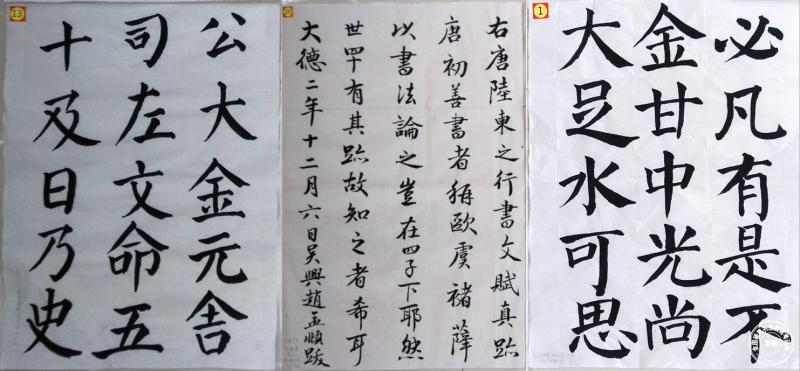 13
公大金元舍
司左文命五
十及日乃史
20
右唐陸東之行書文賦真跡
唐初善書者稱歐虞褚薛
以書法論之豈在四子下耶然
世罕有其跡故知之者希耳
大德二年十二月六日吴興趙孟頫跋
1
必凡有是不
金甘中光尚
大足水可思